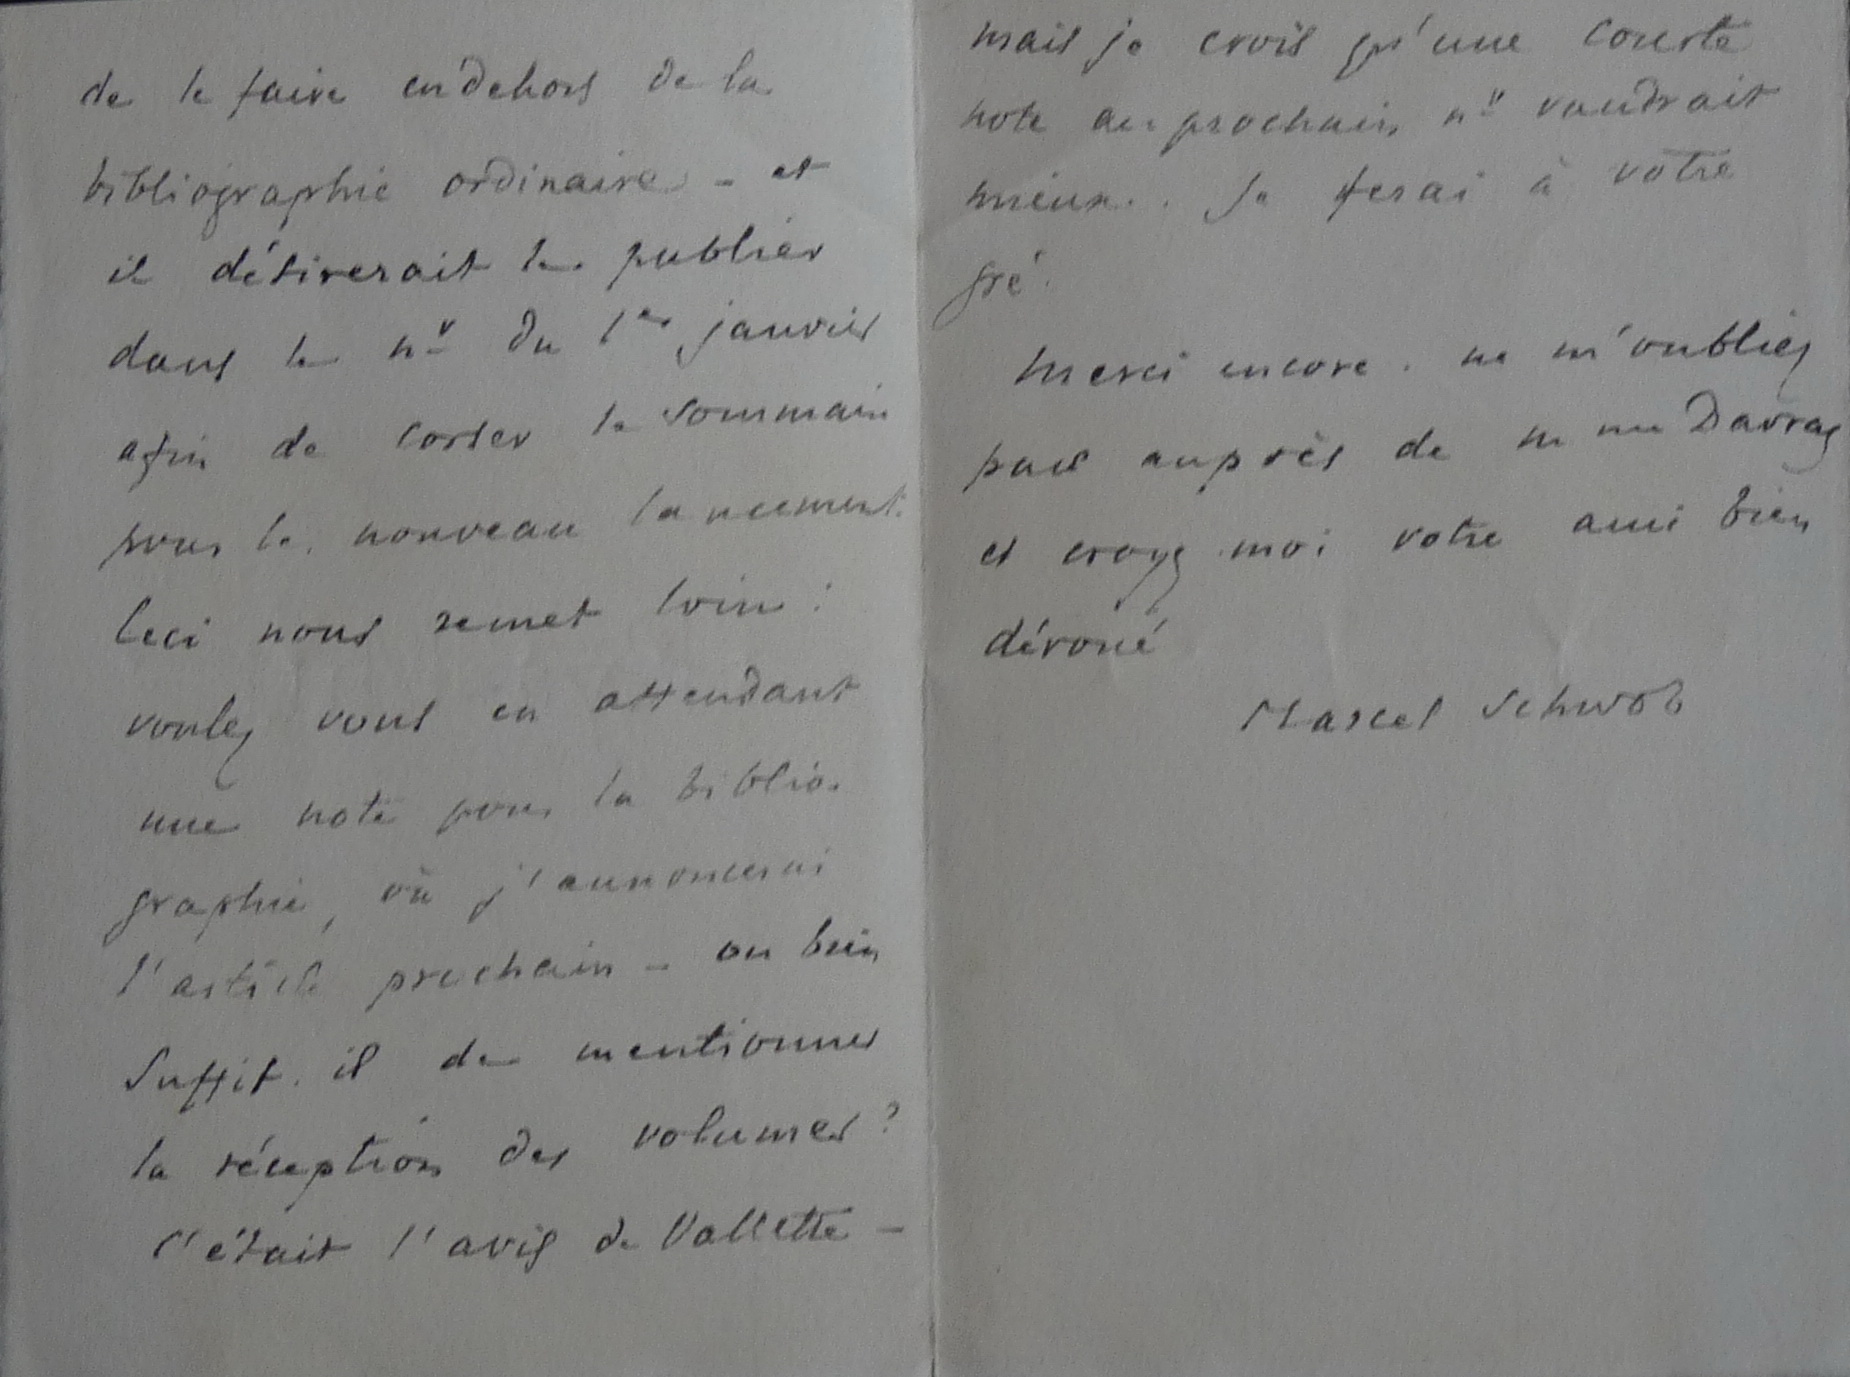 de le faire en dehors de la
bibliographie ordinaire - et
il désirerait le publier
dans le nº du 1er janvier
afin de corser le sommaire
pour le nouveau lancement.
Ceci nous remet loin :
voulez vous en attendant
une note pour la biblio-
graphie, où j'annoncerai
l'article prochain - ou bien
suffit-il de mentionner
la réception des volumes ?
C'était l'avis de Vallette -
mais je crois qu'une courte
note au prochain nº vaudrait
mieux.. Je ferai à votre
gré.
Merci encore. ne m'oubliez
pas auprès de Mme Davray
et croyez moi votre ami bien
dévoué
Marcel Schwob